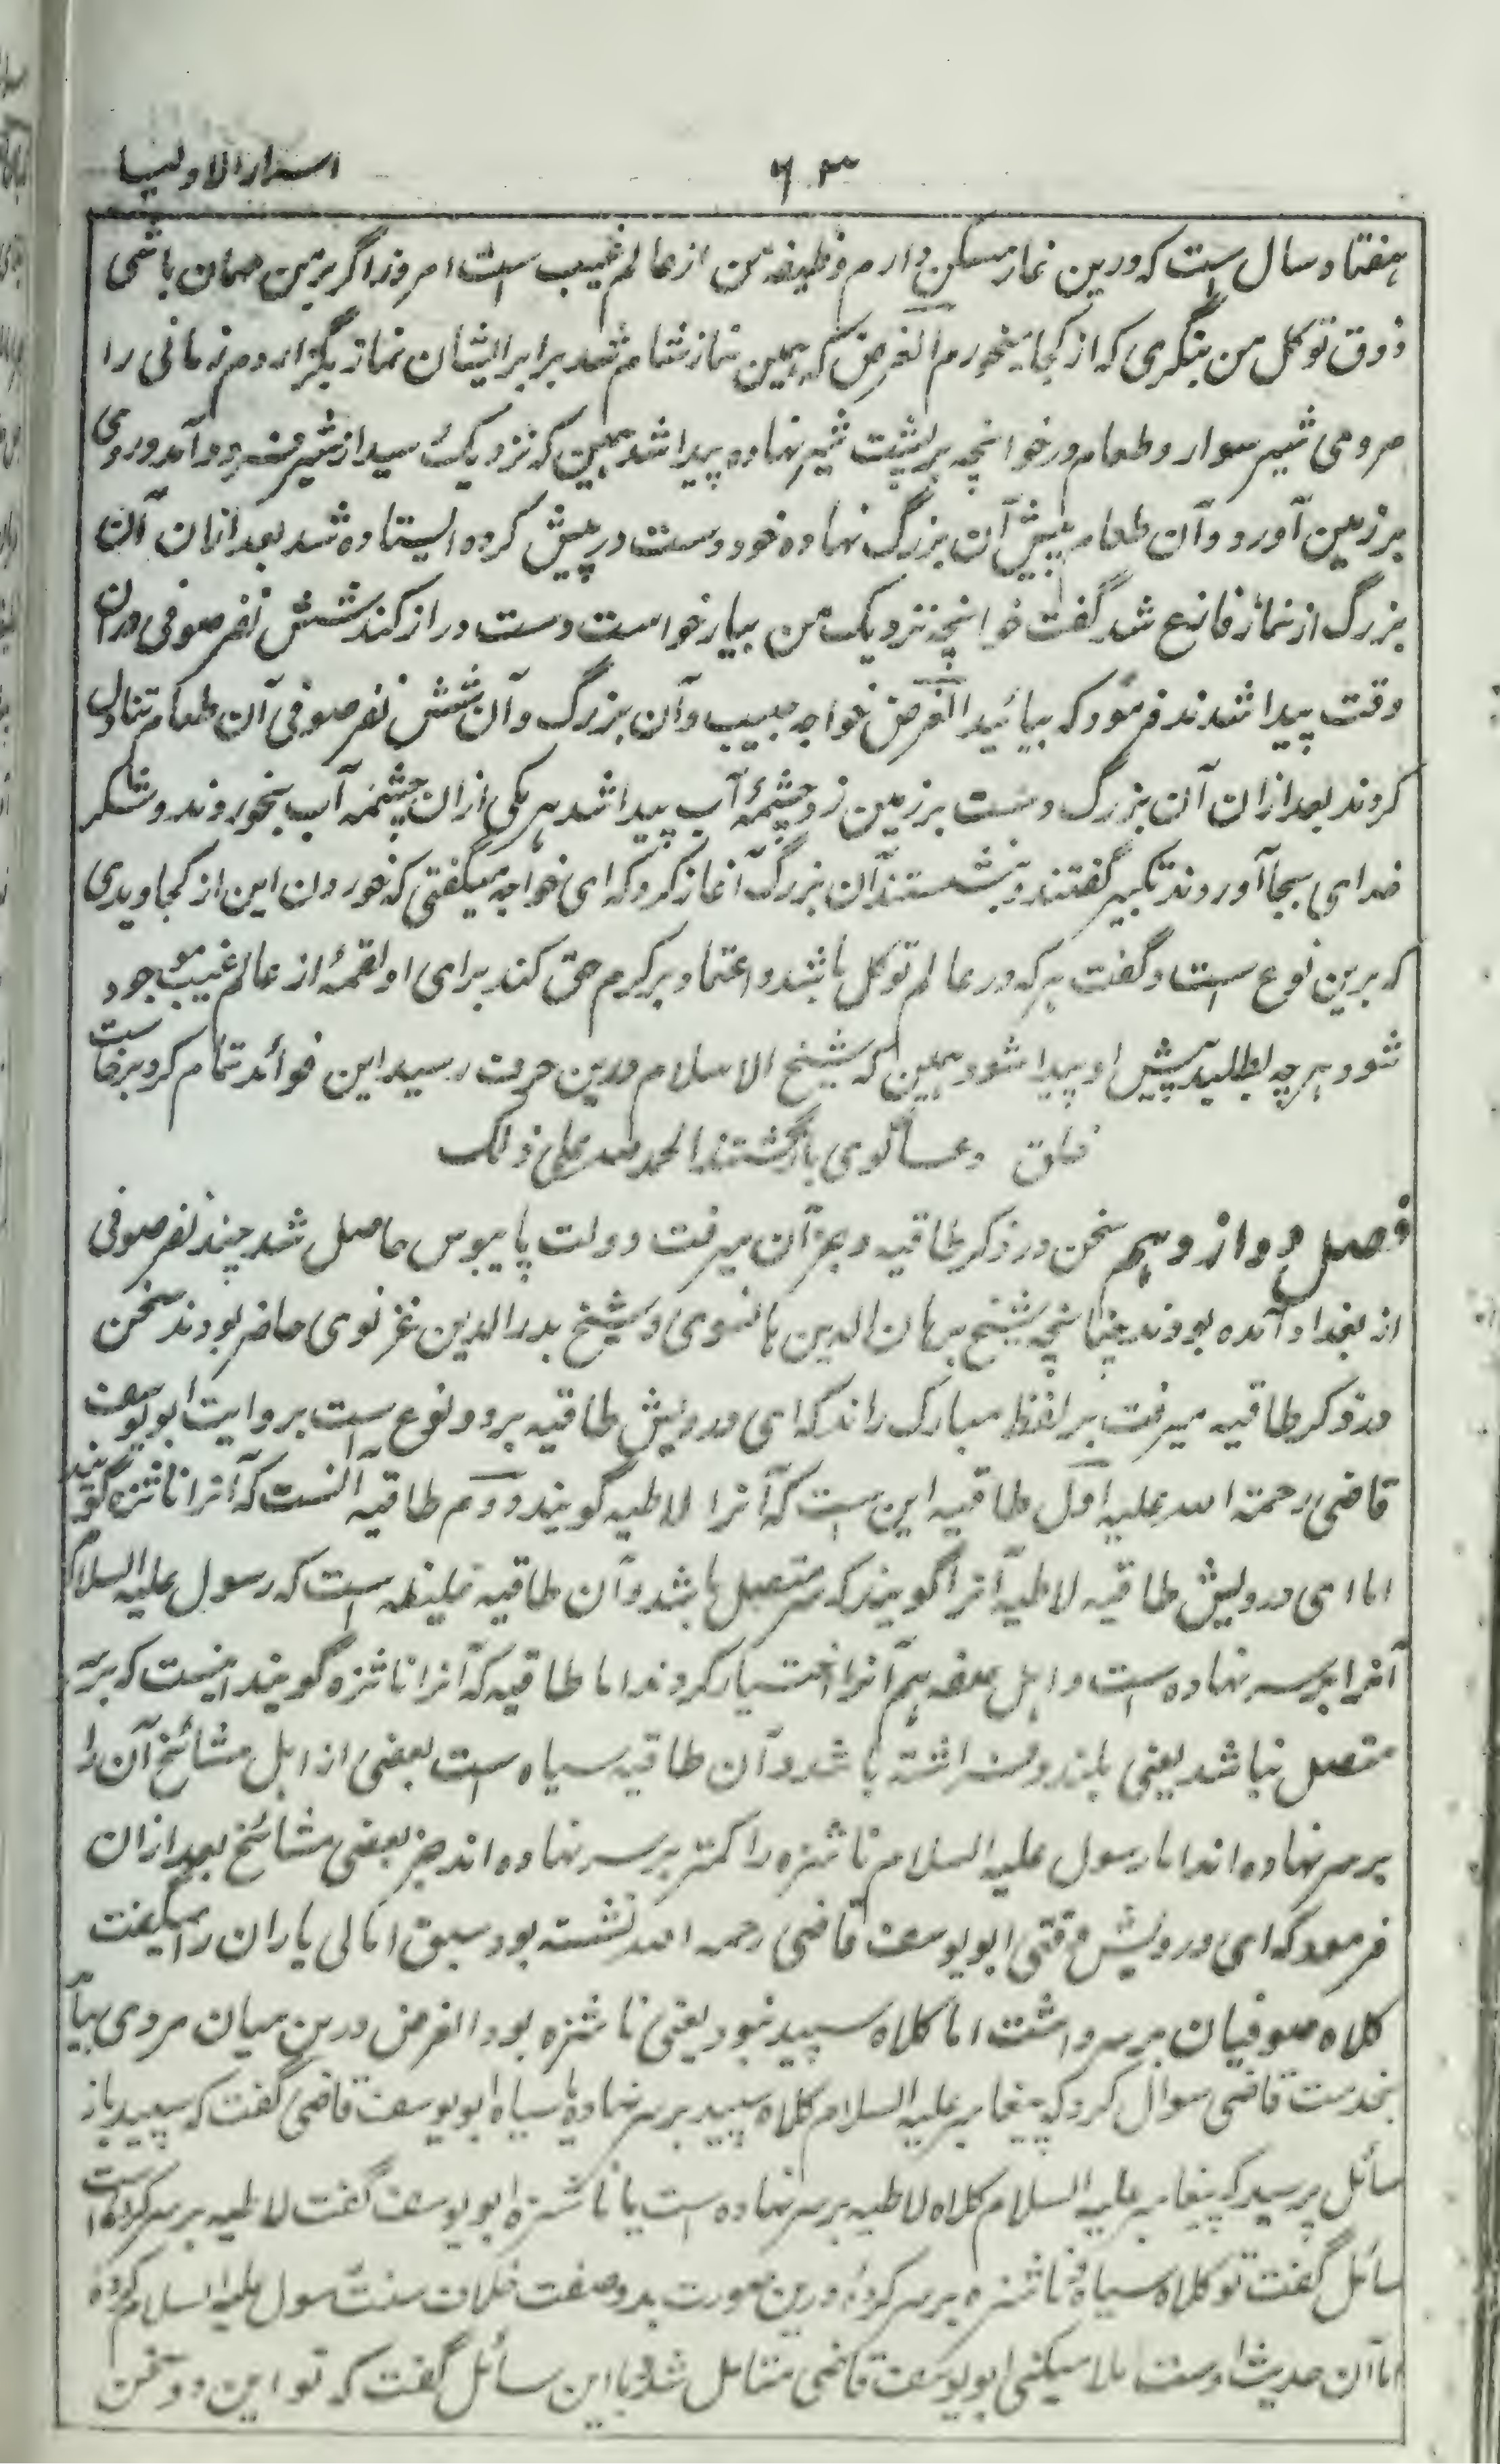 ۶۳ اسرار الاولیا
هفتاد سال است که درین غار مسکن دارم وظیفه من از عالم غیب است امروز اگر بر من مهمان باشی
ذوق توکل من بنگری که از کجا میخورم الغرض که همین نماز شام شد برابر ایشان نماز بگزارد هم زمانی را
مردمی شیر سوار و طعام در خوانچه بر پشت شیر نهاده پیدا شد همین که نزدیک رسید از شیر فرود آمد و روی
بر زمین آورد و آن طعام پیش آن بزرگ نهاده خود دست در پیش کرده ایستاده شد بعد ازان آن
بزرگ از نماز فارغ شد گفت خوانچه نزدیک من بیار خواست دست دراز کند شش نفر صوفی دران
وقت پیدا شدند فرمود که بیائید الغرض خواجه حبیب و آن بزرگ و آن شش نفر صوفی آن طعام تناول
کردند بعد ازان آن بزرگ دست بر زمین زد چشمهٔ آب پیدا شد هر یکی ازان چشمه آب بخوردند و شکر
خدای بجا آوردند تکبیر گفتند و بنشستند آن بزرگ آغاز کرد که ای خواجه میگفتی که خوردن این از کجا دیدی
که برین نوع است و گفت هر که در عالم توکل باشد و اعتماد بر کرم حق کند برای او لقمهٔ از عالم غیب موجود
شود هرچه بطلبد پیش او پیدا شود همین که شیخ الاسلام درین حرف رسید این فوائد تمام کرد برخاست
خلق و دعاگوی بازگشتند الحمد لله علی ذلک
فصل دوازدهم سخن در ذکر طاقیه و جز آن میرفت دولت پایبوس حاصل شد چند نفر صوفی
از بغداد آمده بودند چنانچه شیخ برهان الدین هانسوی و شیخ بدرالدین غزنوی حاضر بودند سخن
در ذکر طاقیه میرفت بر لفظ مبارک راند که ای درویش طاقیه بر دو نوع است بروایت ابو یوسف
قاضی رحمة الله علیه اول طاقیه این است که آنرا لاطیه گویند دوم طاقیه آنست که آنرا ناشزه گویند
اما ای درویش طاقیه لاطیه آنرا گویند که بسر متصل باشد و آن طاقیه است که رسول علیه السلام
آنرا بر سر نهاده است و اهل صفه هم آنرا اختیار کردند اما طاقیه که آنرا ناشزه گویند اینست که بر سر
متصل نباشد یعنی بلند و افراشته باشد و آن طاقیه سیاه است بعضی از اهل مشائخ آن را
بر سر نهاده اند اما رسول علیه السلام ناشزه را کمتر بر سر نهاده اند جز بعضی مشائخ بعد ازان
فرمود که ای درویش وقتی ابو یوسف قاضی رحمه الله نشسته بود سبق امالی یاران را میگفت
کلاه صوفیان بر سر داشت اما کلاه سپید نبود یعنی ناشزه بود الغرض درین میان مردی بیامد
بخدمت قاضی سوال کرد که پیغامبر علیه السلام کلاه سپید بر سر نهاده یا سیاه ابو یوسف قاضی گفت که سپید باز
سائل پرسید که پیغامبر علیه السلام کلاه لاطیه بر سر نهاده است یا ناشزه ابو یوسف گفت لاطیه بر سر کرده است
سائل گفت تو کلاه سیاه و ناشزه بر سر کردهٔ درین صورت بدو صفت خلاف سنت رسول علیه السلام کردهٔ
اما آن حدیث اوست املا میکنی ابو یوسف قاضی متامل شد و با این سائل گفت که تو این دو سخن